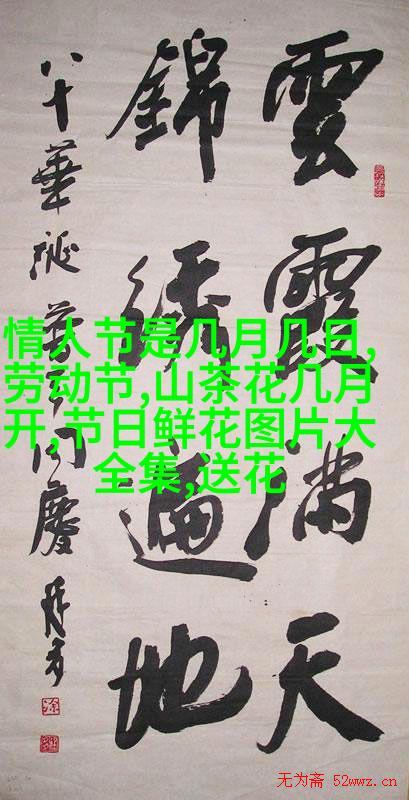 雲霞滿天
錦綉遍地
八十華誕普天同慶
情人节是几月几日,
劳动节,山茶花几月
开,节日鲜花图片大
全集,送花
无为斋 52wwz.cn